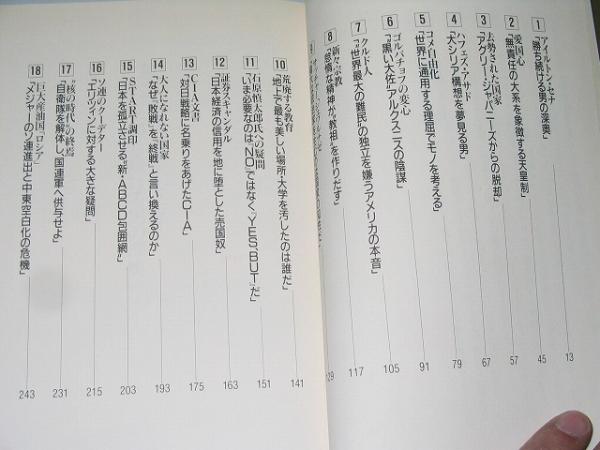 1 アイルトン・セナ
「勝ち続ける男の深奥」
13
2 愛国心
「無責任の大系を象徴する天皇制」
45
3 去勢された国家
「アグリー・ジャパニーズからの脱却」
57
4 ハフェズ・アサド
「大シリア構想を夢見る男」
67
5 コメ自由化
「世界に通用する理屈でモノを考える」
79
6 ゴルバチョフの変心
「“黒い大佐”アルクスニスの陰謀」
91
7 クルド人
「“世界最大の難民”の独立を嫌うアメリカの本音」
105
8 新々宗教
「怠惰な精神が“教祖”を作りだす」
117
29
10 荒廃する教育
「地上で最も美しい場所・大学を汚したのは誰だ」
141
11 石原慎太郎氏への疑問
「いま必要なのは、“NO”ではなく、“YES、BUT”だ」
151
12 証券スキャンダル
「日本経済の信用を地に堕とした売国奴」
163
13 CIA文書
「対日戦略に名乗りをあげたCIA」
175
14 大人になれない国家
「なぜ、“敗戦”を、“終戦”と言い換えるのか」
193
15 START調印
「日本を孤立させる“新・ABCD包囲網”」
203
16 ソ連のクーデター
「エリツィンに対する大きな疑問」
215
17 “核の時代”の終焉
「自衛隊を解体し、国連軍へ供与せよ」
231
18 巨大産油国「ロシア」
「“メジャー”のソ連進出と中東空白化の危機」
243